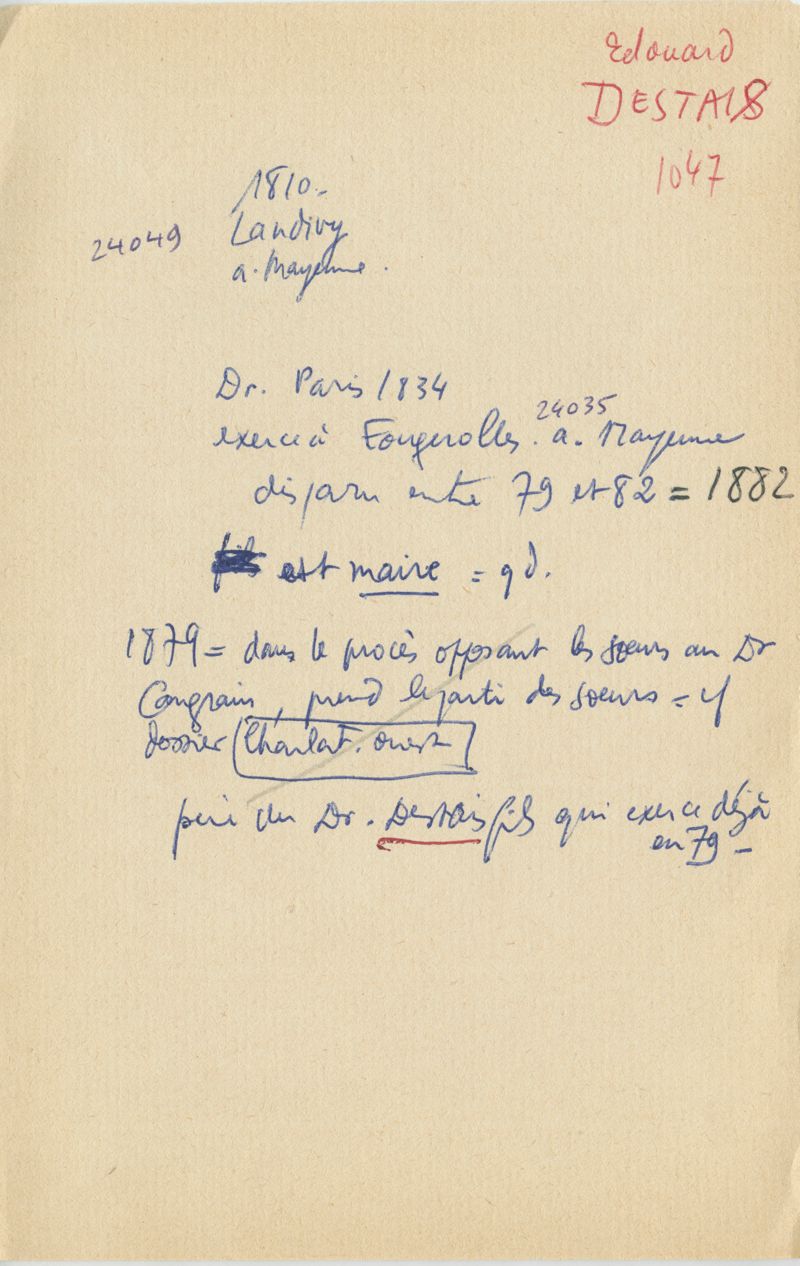 Edouard
DESTAIS
1047
1810.
24049 Landivy
a. Mayenne.
Dr. Paris 1834
24035
exerce à Fougerolles. a. Mayenne
disparu entre 79 et 82 = 1882
est maire = qd.
1879 = dans le procès opposant les soeurs au Dr
Congrain, prend le parti des soeurs = cf
dossier Charlat. ouest
père du Dr. Destais fils qui exerce déjà
en 79 -